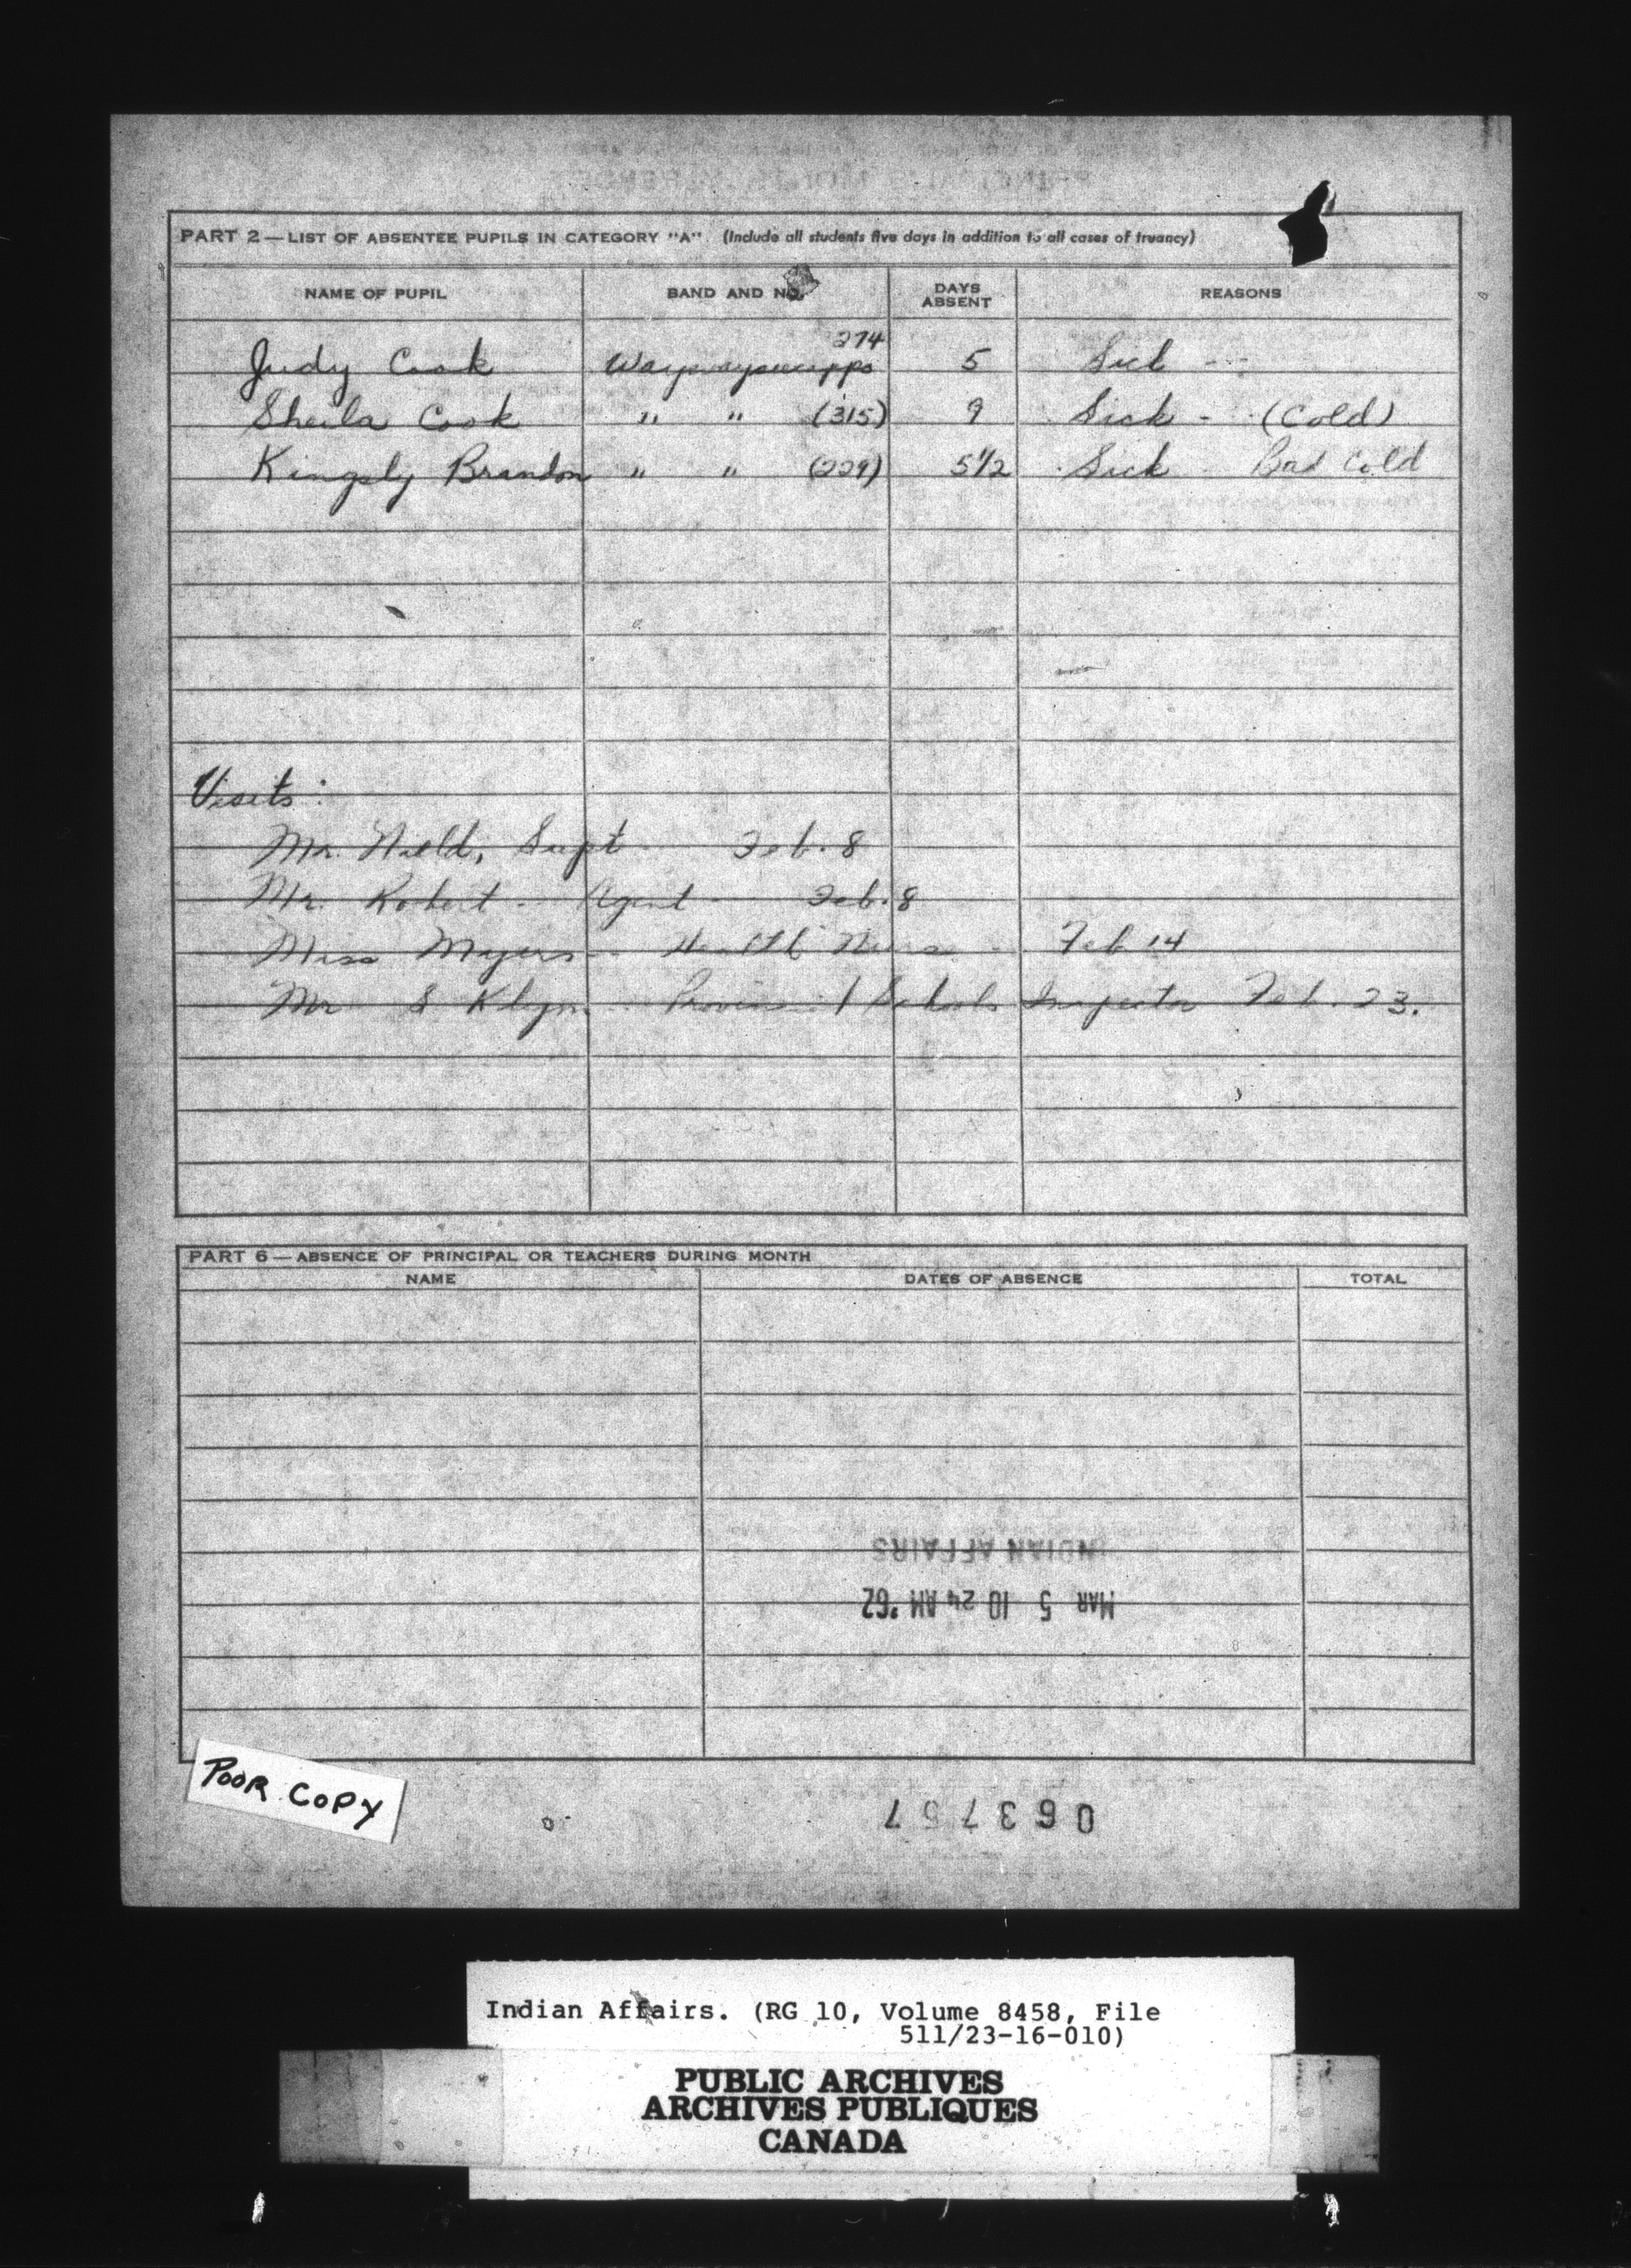 PART 2—LIST OF ABSENTEE PUPILS IN CATEGORY "A" (Include all students five days in addition to all cases of truancy)
NAME OF PUPIL BAND AND NO. DAYS ABSENT REASONS
274
Judy Cook Waywayseecappo 5 Sick --
Sheila Cook " " (315) 9 Sick - (Cold)
Kingsly Brandon " " (229) 5 1/2 Sick Bad Cold
Visits:
Mr. Nield, Supt Feb. 8
Mr. Robert -- Agent -- Feb. 8
Miss Meyers -- Health Nurse - Feb 14
Mr S Klym -- Provincial Schools Inspector Feb. 23.
PART 6—ABSENCE OF PRINCIPAL OR TEACHERS DURING MONTH
NAME DATES OF ABSENCE TOTAL
INDIAN AFFAIRS
MAR 5 10 24 AM '62
POOR COPY
063757
Indian Affairs. (RG 10, Volume 8458, File
511/23-16-010)
PUBLIC ARCHIVES
ARCHIVES PUBLIQUES
CANADA